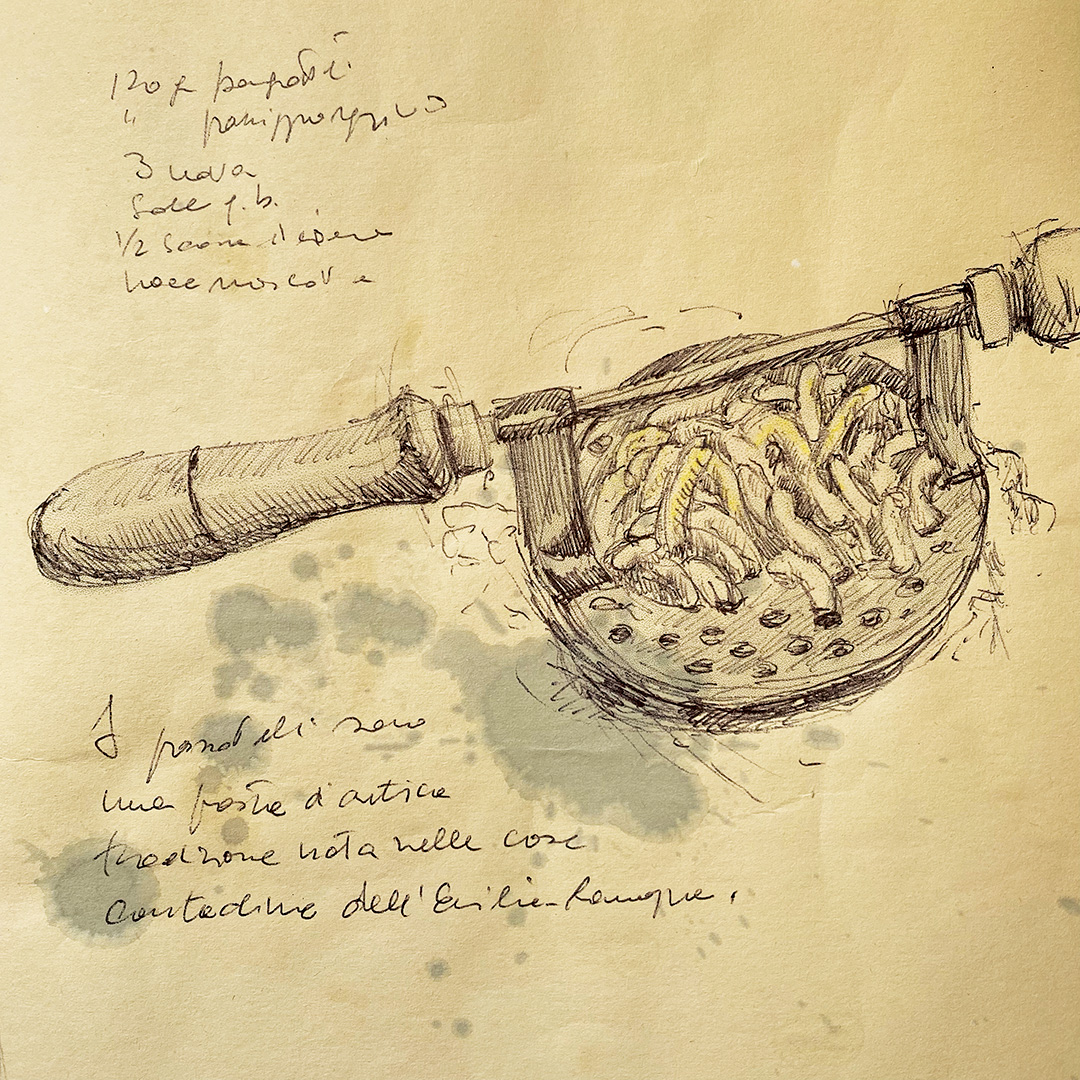 120 g pangrattati
" parmiggiano
3 uova
Sale q.b.
1/2 scorza di limone
Noce moscata
I passatelli sono
una pasta d'antica
tradizione nata nelle case
contadine dell'Emilia-Romagna.